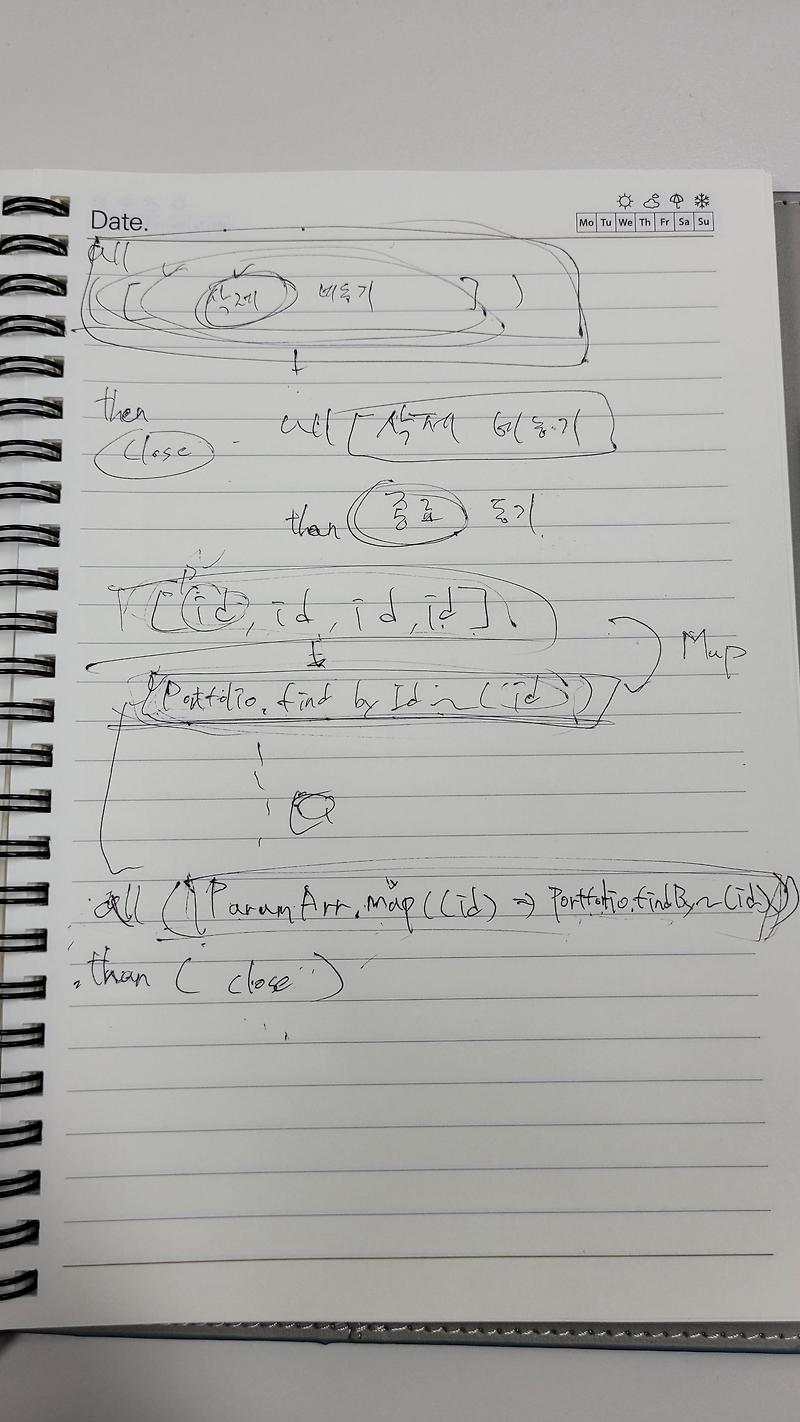 Date.
Mo Tu We Th Fr Sa Su
all
( [ 삭제 비동기 ] )
then
close
all [ 삭제 비동기
than 종료 동기
[ id, id, id, id ]
Map
Portfolio.find by Id ~ ( id )
all ( ParamArr.map((id) => Portfolio.findBy~(id)))
.than ( close )